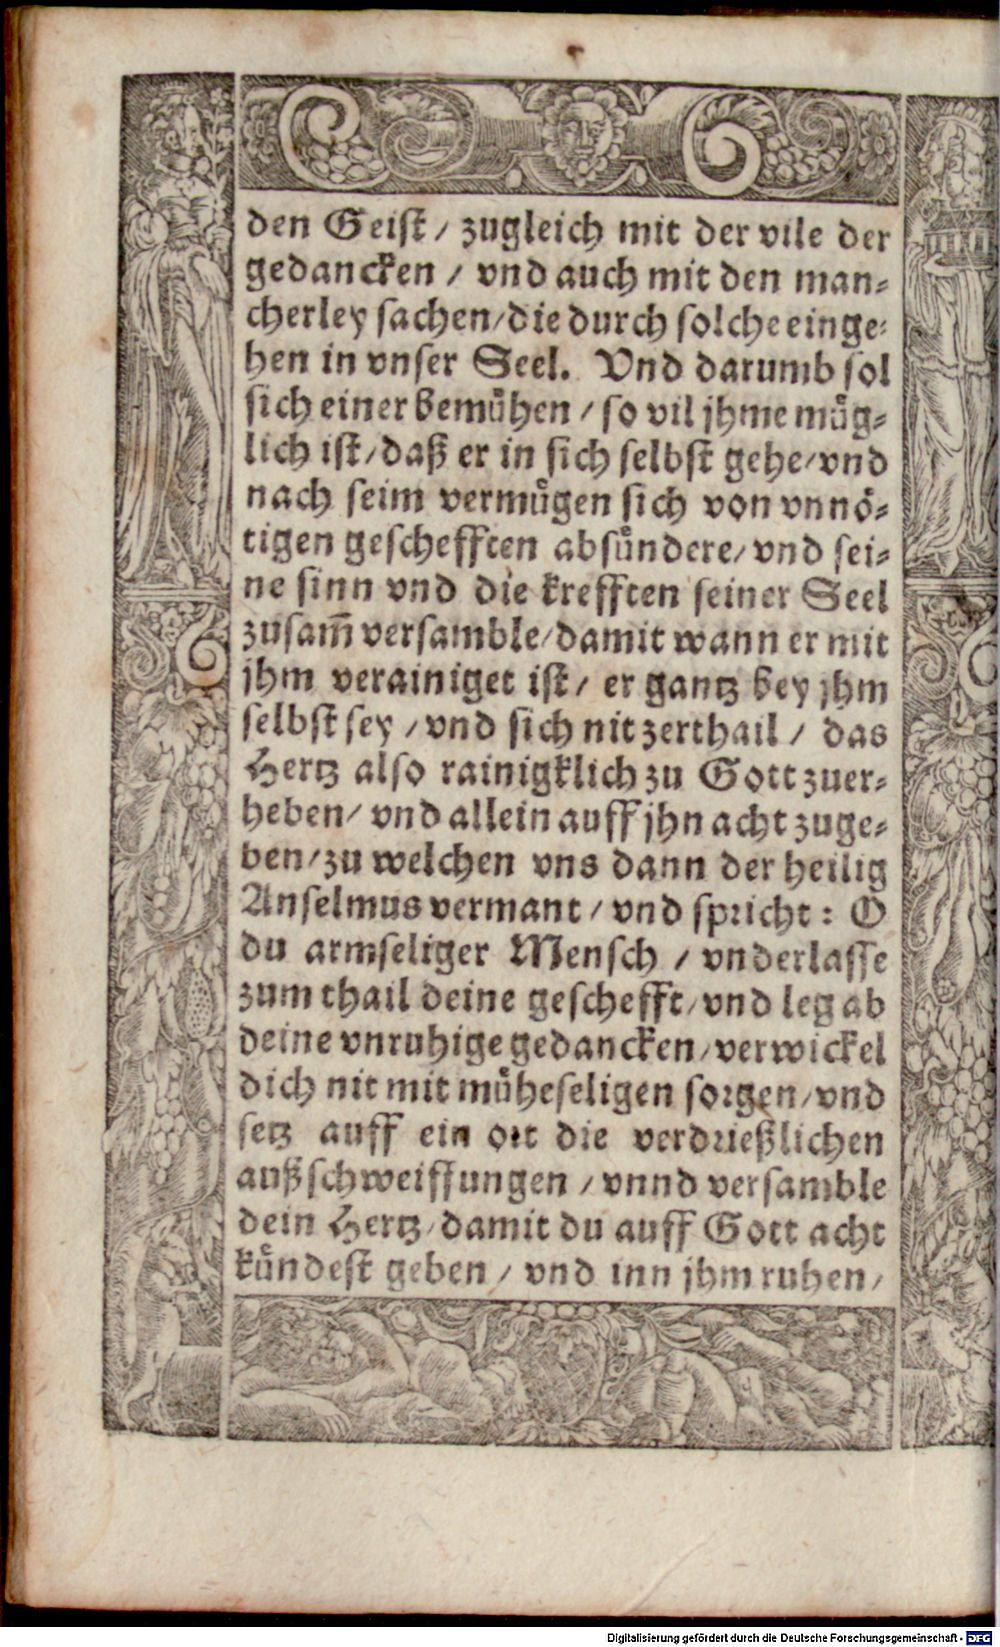 den Geist / zugleich mit der vile der
gedancken / vnd auch mit den man⸗
cherley sachen/die durch solche einge⸗
hen in vnser Seel. Vnd darumb sol
sich einer bemuͤhen / so vil jhme muͤg⸗
lich ist/daß er in sich selbst gehe/vnd
nach seim vermuͤgen sich von vnnoͤ⸗
tigen geschefften absuͤndere/ vnd sei⸗
ne sinn vnd die krefften seiner Seel
zusam̃ versamble/damit wann er mit
jhm verainiget ist/ er gantz bey jhm
selbst sey / vnd sich nit zerthail / das
Hertz also rainigklich zu Gott zuer⸗
heben/ vnd allein auff jhn acht zuge⸗
ben/zu welchen vns dann der heilig
Anselmus vermant / vnd spricht: O
du armseliger Mensch / vnderlasse
zum thail deine geschefft/vnd leg ab
deine vnruhige gedancken/verwickel
dich nit mit muͤheseligen sorgen/vnd
setz auff ein ort die verdrießlichen
außschweiffungen / vnnd versamble
dein Hertz/damit du auff Gott acht
kuͤndest geben / vnd inn jhm ruhen/
Digitalisierung gefördert durch die Deutsche Forschungsgemeinschaft - DFG